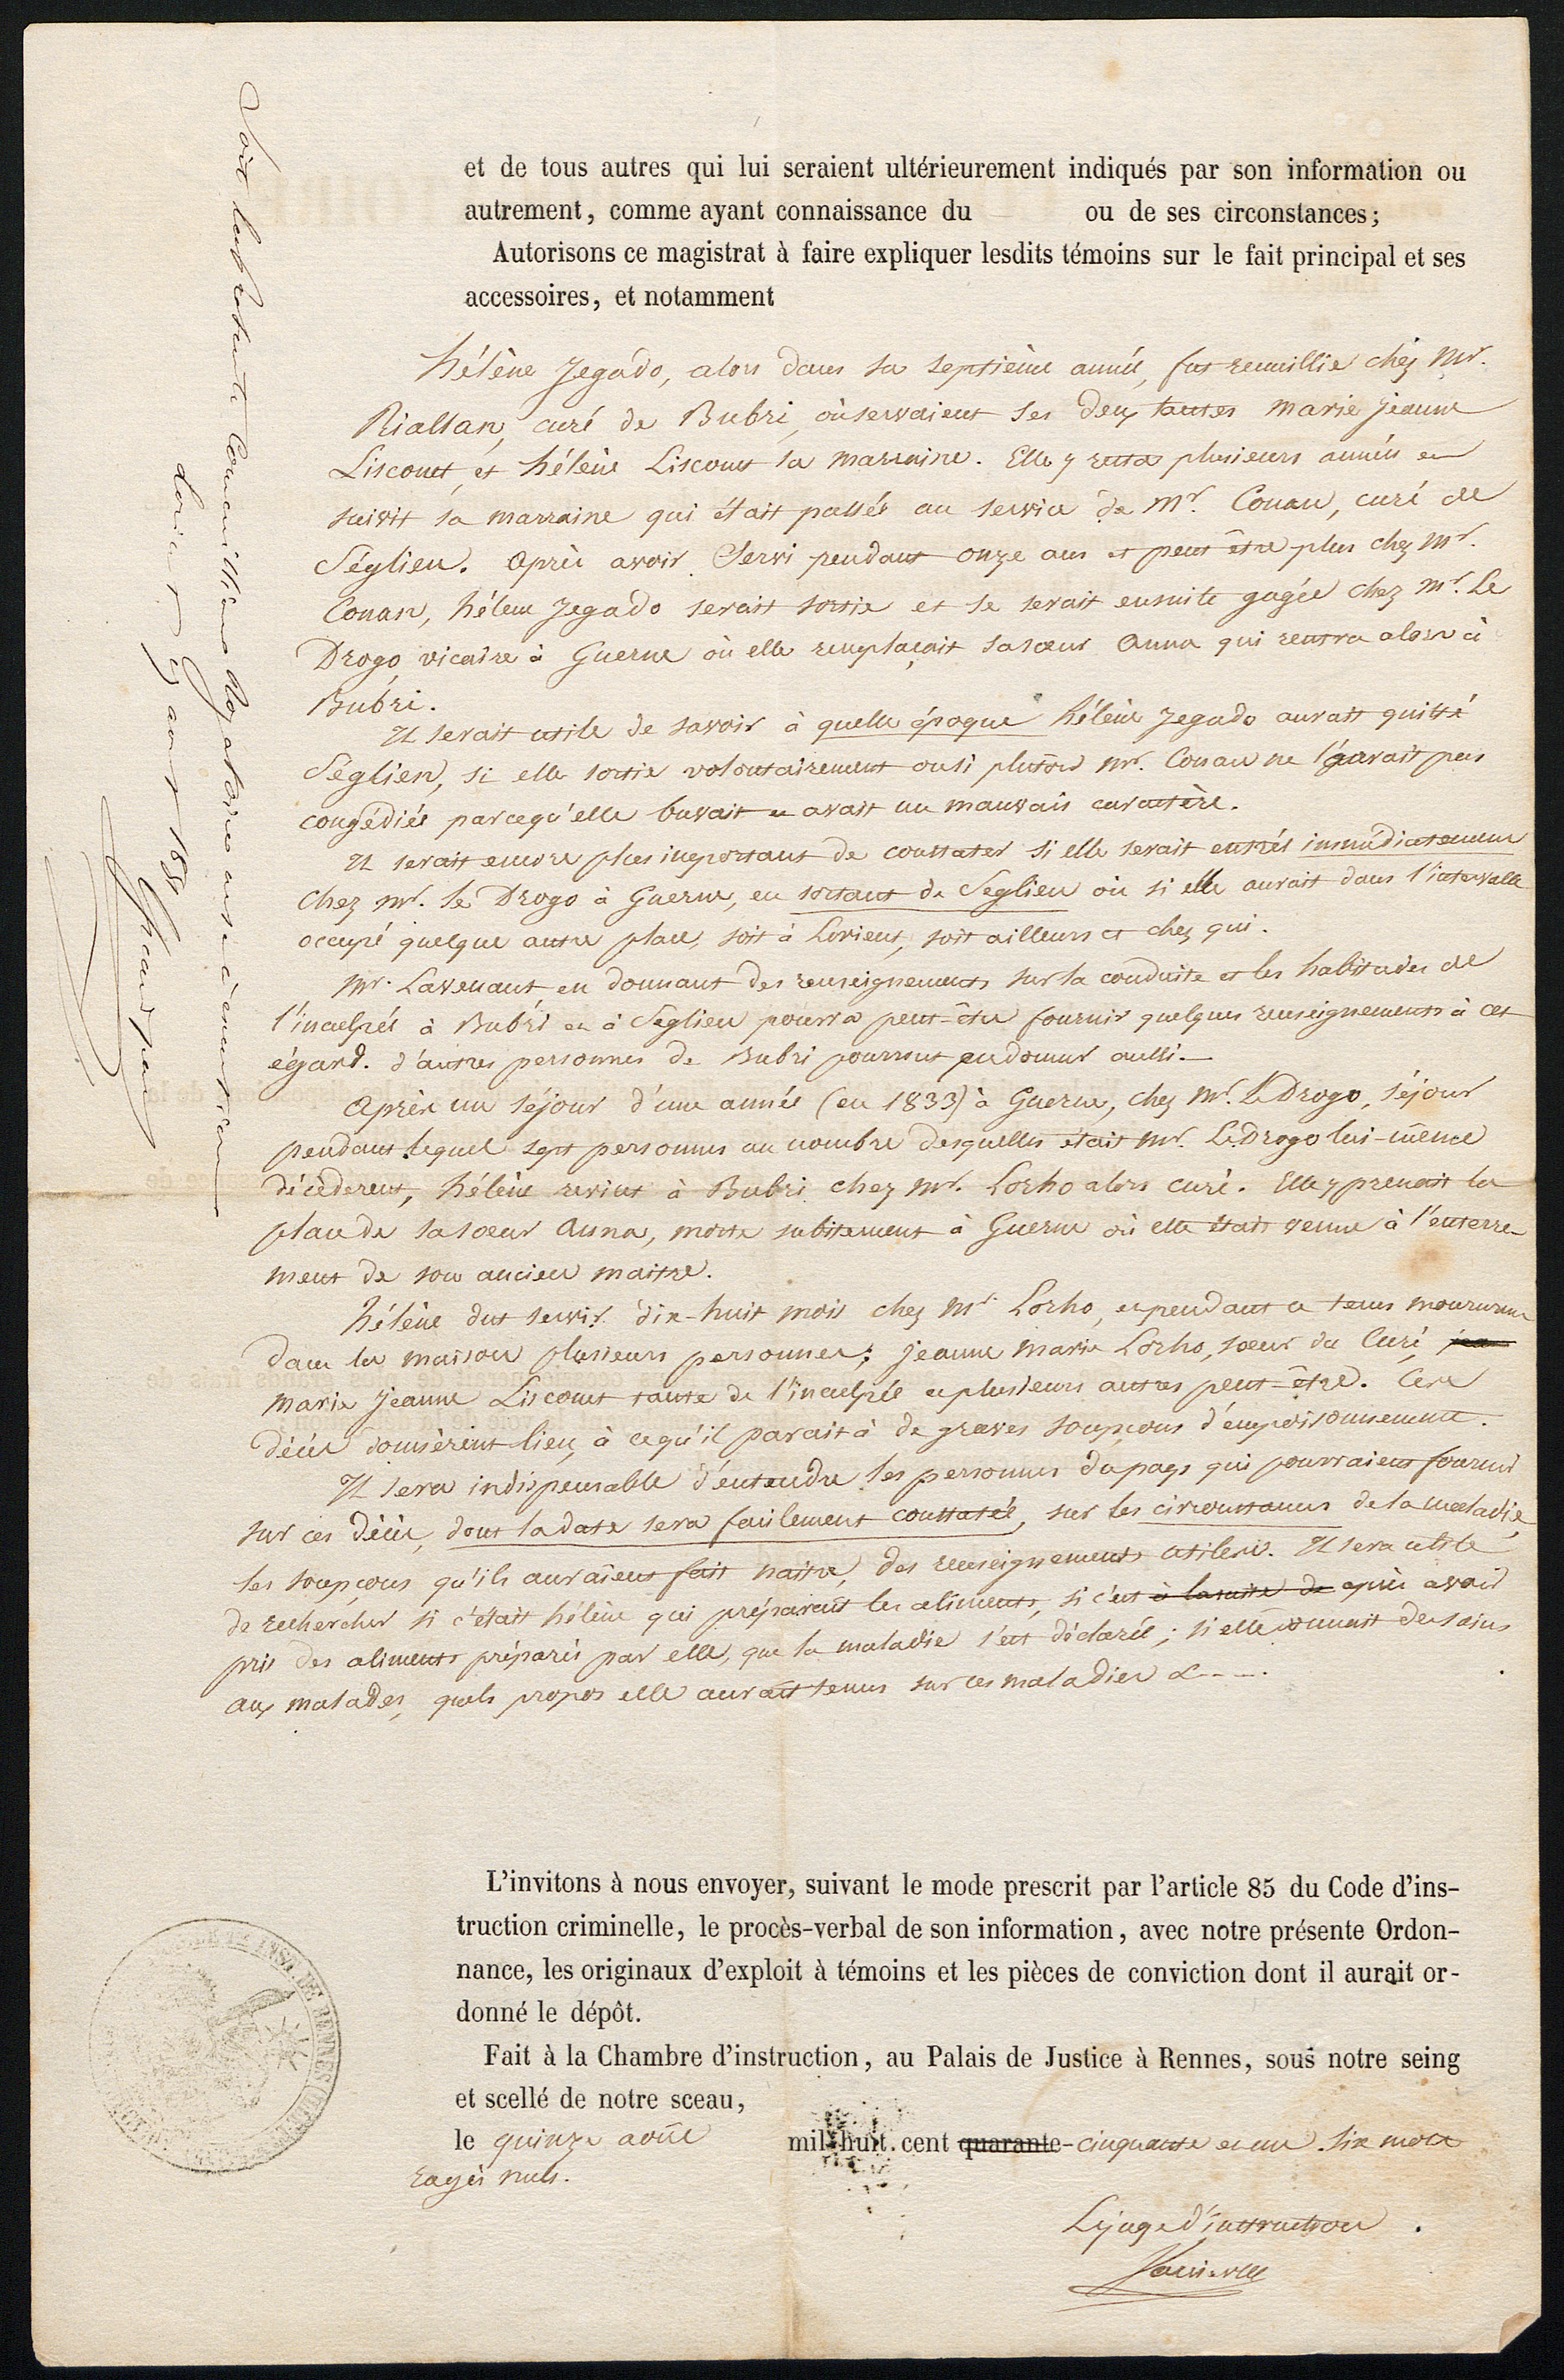 et de tous autres qui lui seraient ultérieurement indiqués par son information ou
autrement, comme ayant connaissance du ou de ses circonstances;
Autorisons ce magistrat à faire expliquer lesdits témoins sur le fait principal et ses
accessoires, et notamment
hélène Jegado, alors dans sa septième année, fut recueillie chez Mr.
Riallan, curé de Bubri, où servaient ses deux tantes marie jeanne
Liscouet, et hélène Liscouet sa marraine. Elle y resta plusieurs années et
suivit sa marraine qui était passée au service de Mr. Conan, curé de
Séglien. après avoir servi pendant onze ans et peut être plus chez Mr.
Conan, hélène Jegado serait sortie et se serait ensuite gagée chez Mr. Le
Drogo, vicaire à Guerne où elle remplaçait sa sœur anna qui rentra alors à
Bubri.
Il serait utile de savoir à quelle époque hélène Jegado aurait quitté
Séglien, si elle sortie volontairement ou si plutôt Mr. Conan ne l'aurait pas
congédiée parcequ'elle buvait et avait un mauvais caractère.
Il serait encore plus important de constater si elle serait entrée immédiatement
chez Mr. Le Drogo à Guerne, en sortant de Seglien où si elle aurait dans l'intervalle
occupé quelque autre place, soit à Lorient, soit ailleurs et chez qui.
Mr. Lavenant en donnant des renseignements sur la conduite et les habitudes de
l'inculpée à Bubri et à Seglien pourra peut-être fournir quelques renseignements à cet
égard. d'autres personnes de Bubri pourront en donner aussi.
après un séjour d'une année (en 1833) à Guerne, chez Mr. Le Drogo, séjour
pendant lequel sept personnes au nombre desquelles était Mr. Le Drogo lui-même
décèderent, hélène revint à Bubri chez Mr. Lorho alors curé. Elle y prenait la
place de sa sœur anna, morte subitement à Guerne où elle était venue à l'enterre-
ment de son ancien maitre.
hélène dut servir dix-huit mois chez Mr. Lorho, et pendant ce tems moururent
dans la maison plusieurs personnes; jeanne marie Lorho, sœur du Curé,
marie jeanne Liscouet tante de l'inculpée et plusieurs autres peut-être. Ces
décès donnèrent lieu, à ce qu'il parait à de graves soupçons d'empoisonnement.
Il sera indispensable d'entendre les personnes du pays qui pourraient fournir
sur ces décès, dont la date sera facilement constatée, sur les circonstances de la maladie,
les soupçons qu'ils auraient fait naitre, des renseignements utiles. Il sera utile
de rechercher si c'était hélène qui préparait les aliments, si c'est à la suite de après avoir
pris des aliments préparés par elle, que la maladie s'est déclarée; si elle donnait des soins
aux malades, quels propos elle aurait tenus sur ces maladies &----.
L'invitons à nous envoyer, suivant le mode prescrit par l'article 85 du Code d'ins-
truction criminelle, le procès-verbal de son information, avec notre présente Ordon-
nance, les originaux d'exploit à témoins et les pièces de conviction dont il aurait or-
donné le dépôt.
Fait à la Chambre d'instruction, au Palais de Justice à Rennes, sous notre seing
et scellé de notre sceau,
le quinze août mil huit cent quarante-cinquante et un. six mots
rayés nuls.
Le juge d'instruction.
DE RENNES